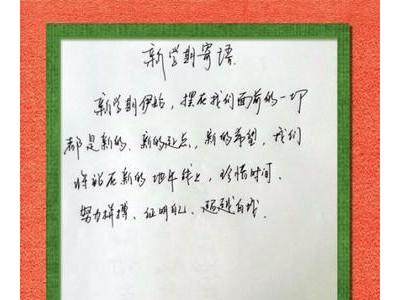 新学期寄语
新学期伊始，摆在我们面前的一切
都是新的、新的起点，新的希望，我们
将站在新的地平线上，珍惜时间、
努力拼搏、证明自己、超越自我.